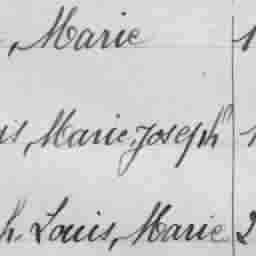 , Marie 1
is, Marie, Joseph 1
h, Louis, Marie 2